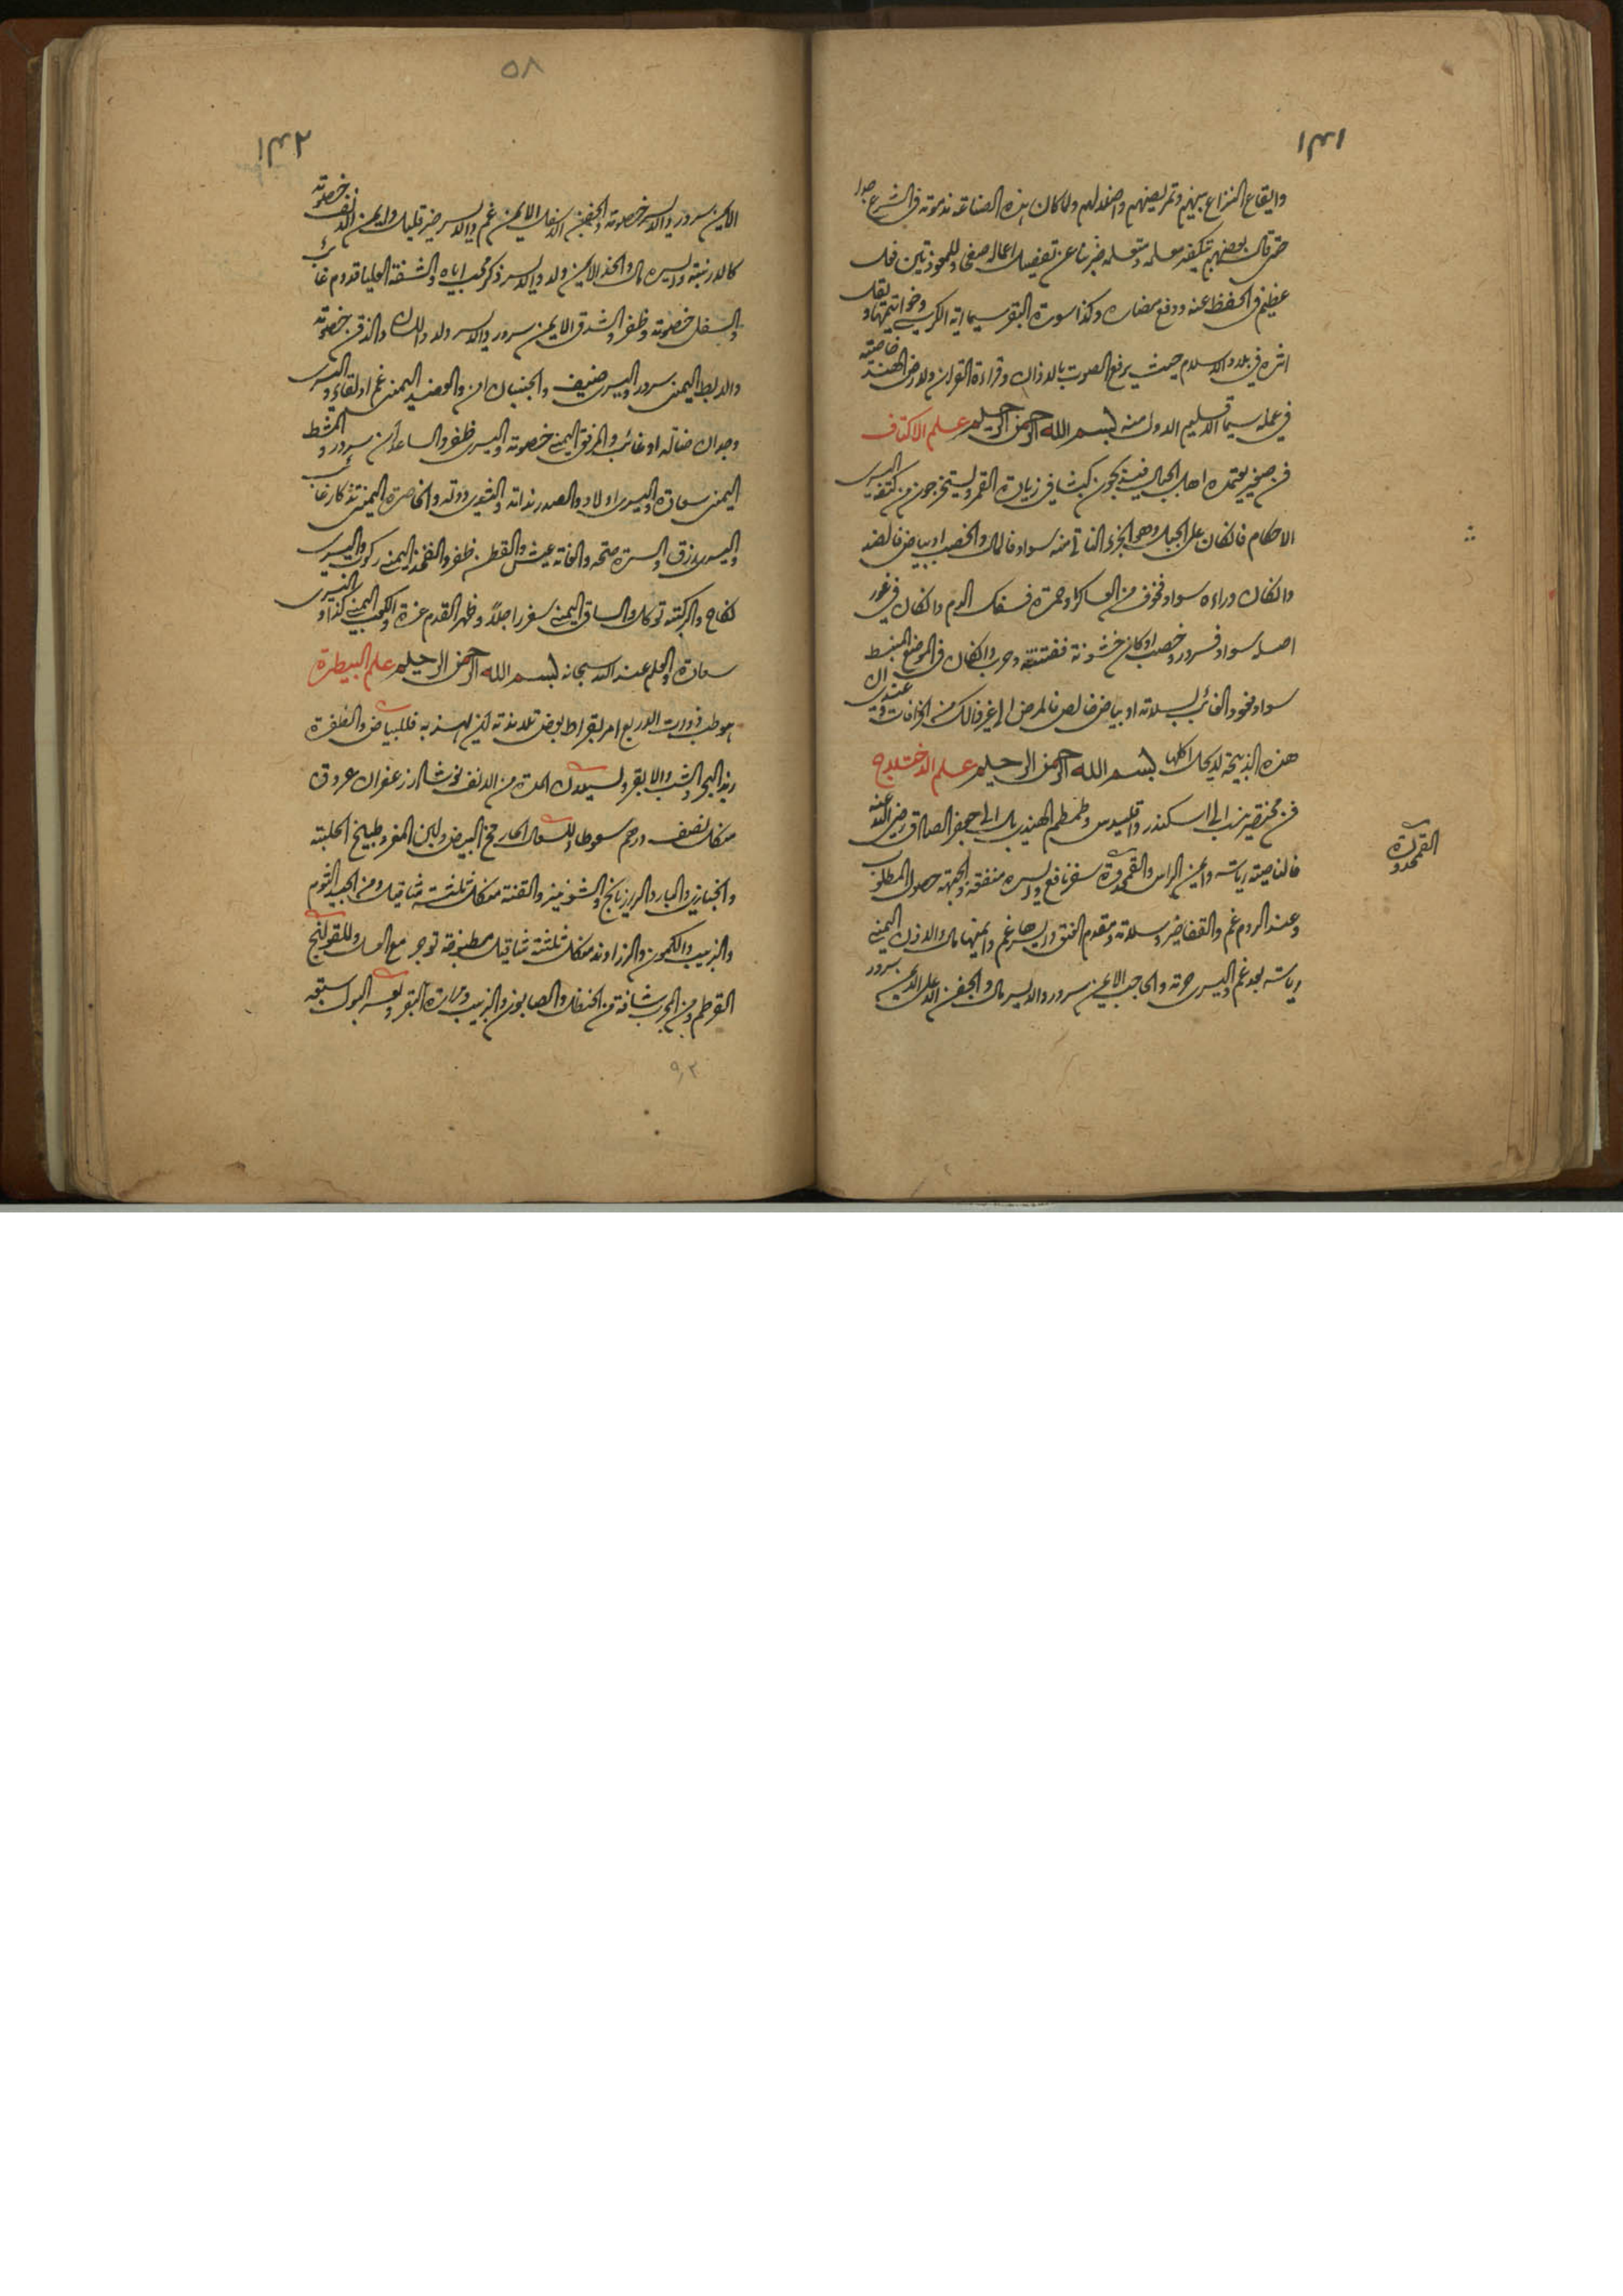 ١٣١
وايقاع النزاع بينهم وتمريضهم واضلالهم ولما كان هذه الصناعة مذمومة في الشرع جدا
حتى قال بعضهم بتكفير معلمه ومتعلمه ضربنا عن تفصيل اعماله صفحا وللمعوذتين فعل
عظيم في الحفظ عنه ودفع مضاره وكذا سورة البقر سيما اية الكرسي وخواتيمها ويقل
اثره في بلاد الاسلام حيث يرفع الصوت بالاذان وقراءة القران ولارض الهند خاصية
في عمله سيما الاقليم الاول منه بسم الله الرحمن الرحيم علم الاكتاف
فن صغير يعتمده اهل الجبال فيذبحون كبشا في زيادة القمر ويستخرجون من كتفه اليسرى
الاحكام فان كان على الجبل وهو الجزء الناتئ منه سواد فالمال والخصب او بياض فالضد
وان كان وراءه سواد فخوف من العساكر او حمرة فسفك الدم وان كان في غور
اصله سواد فسرور وخصب او كان خشونة ففتنة وحرب وان كان في الموضع المنبسط
سواد فعود الغائب بسلامة او بياض خالص فالمرض الى غير ذلك من الخرافات وعندي ان
هذه الذبيحة لا يحل اكلها بسم الله الرحمن الرحيم علم الاختلاج
فن مختصر ينسب الى اسكندر واقليدس وطمطم الهندي بل الى جعفر الصادق رضي الله عنه
فالناصية رياسة وايمن الراس والقمحدوة سفر نافع وايسره منفعة والجبهة حصول المطلوب
وعند الروم غم والقفا خير وسلامة ومقدم العنق وايسرها غم وايمنها مال والاذن اليمنى
رياسة بعد غم واليسرى حرمة والحاجب الايمن سرور والايسر مال والجفن الاعلى الايمن سرور
القمحدوة
٥٨
١٣٢
الايمن سرور والايسر خصومة والجفن الاسفل الايمن غم والايسر خير قليل وايمن الانف خصومة
كالارنبة وايسره مال والخد الايمن ولد والايسر ذكر محب اياه والشفة العليا قدوم غائب
والسفلى خصومة وظفر والشدق الايمن سرور والايسر ولد واللسان والذقن خصومة
والابط اليمنى سرور واليسرى ضيف والجنبان امن والعضد اليمنى غم او لقاء واليسرى
وجدان ضالة او غائب والمرفق اليمنى خصومة واليسرى ظفر والساعدان سرور والمشط
اليمنى سعادة واليسرى اولاد والصدر نداته والثديين دولة والخاصرة اليمنى تذكار غائب
واليسرى رزق والسرة صحة والعانة عيش والقطن ظفر والفخذ اليمنى ركوب واليسرى
نكاح والركبة توكل والساق اليمنى سفر راجلا وظهر القدم عزة والكعب اليمنى كذا واليسرى
سعادة والعلم عند الله سبحانه بسم الله الرحمن الرحيم علم البيطرة
هو طب ذوات الاربع امر بقراط بعض تلامذته بتهذيبه فللبياض والظفرة
زبد البحر والشب والابقر ولسيلان المدة من الانف نوشادر زعفران عروق
من كل نصف درهم سعوطا وللسعال الحار مح البيض ولبن المعز وطبيخ الحلبة
والخبازى والبارد الرازيانج والشونيز والقنة من كل ثلثة مثاقيل ومن الجبيد الثوم
والزبيب والكمون والزراوند من كل ثلثة مثاقيل مطبوخة توجر مع العسل وللقولنج
القرطم ومن المجرب شافة من الحنظل والصابون والزبيب ومرارة البقر ولعسر البول سبعة